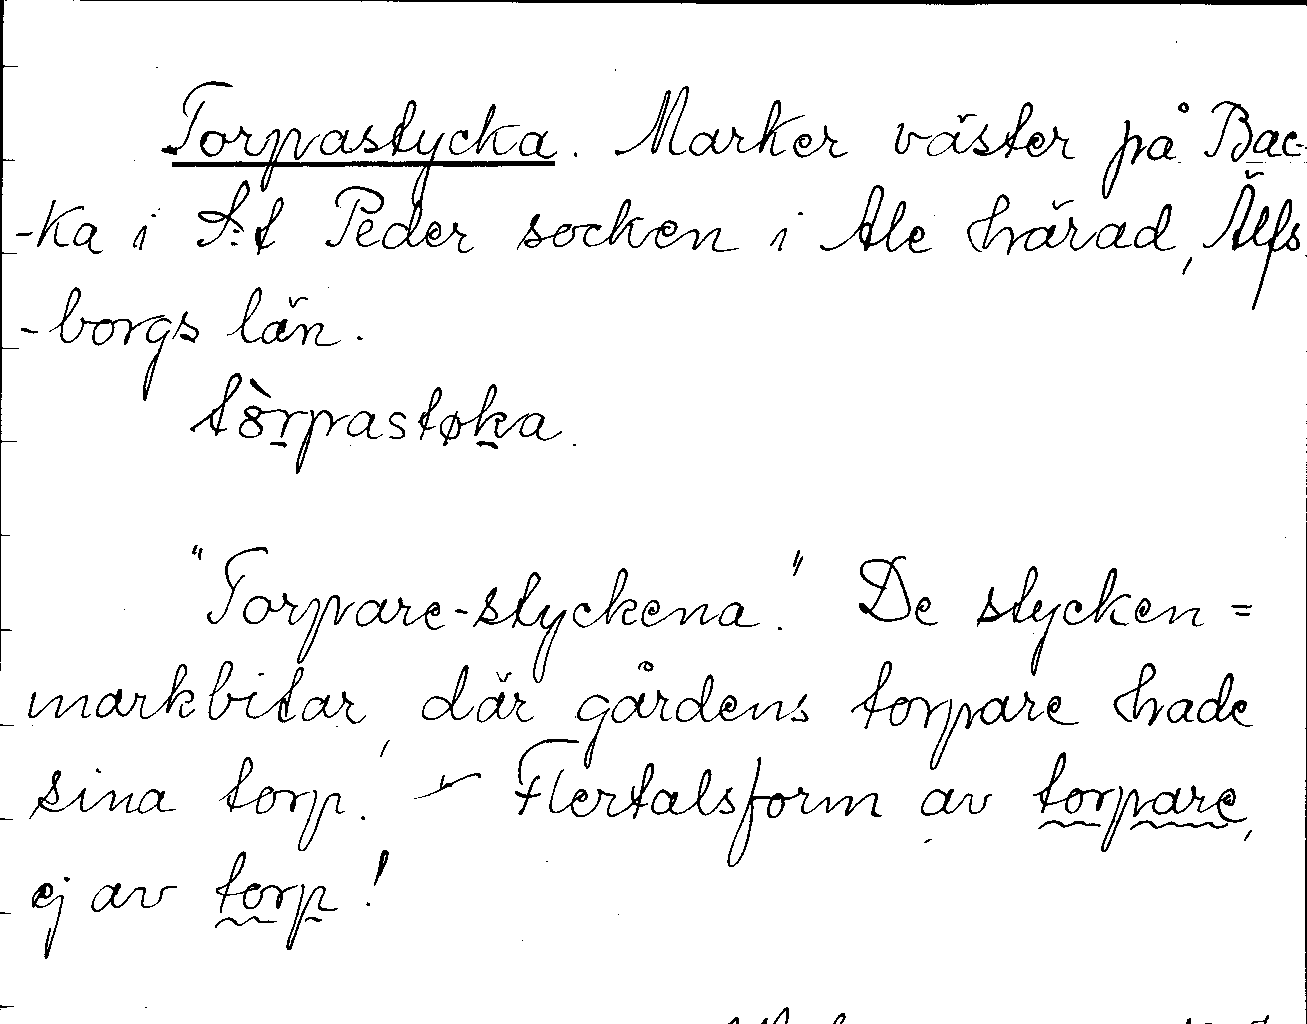 Torpastycka. Marker väster på Bac-
-ka i S:t Peder socken i Ale härad, Älfs
-borgs län.
tòrpastøka.
"Torpare-styckena." De stycken =
markbitar, där gårdens torpare hade
sina torp. - Flertalsform av torpare,
ej av torp!